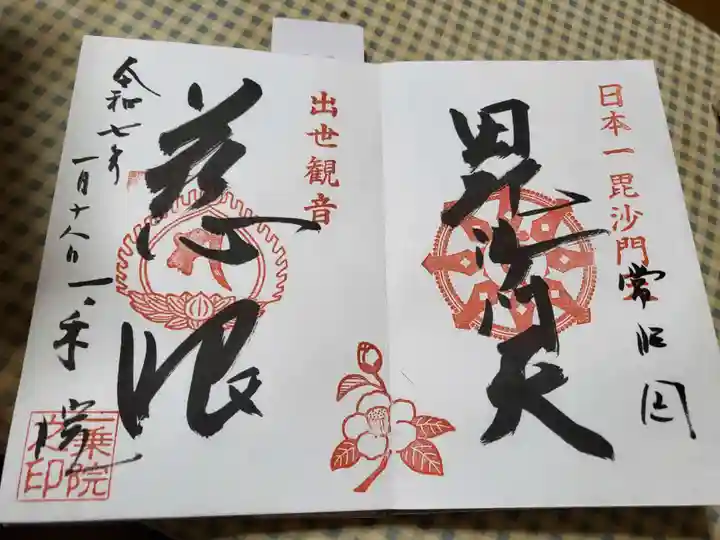 日本一毘沙門
常陸国
毘沙門天
出世観音
慈眼
令和七年
一月十八日
一乗院
一乗院之印